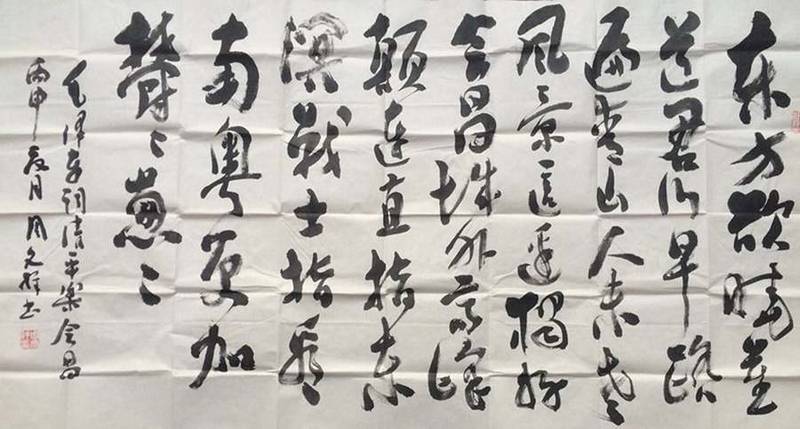 东方欲晓莫
道君行早踏
遍青山人未老
风景这边独好
会昌城外高峰
颠连直指东
溟战士指看
南粤更加
郁〻葱〻
毛泽东词清平乐会昌
丙申月周文书